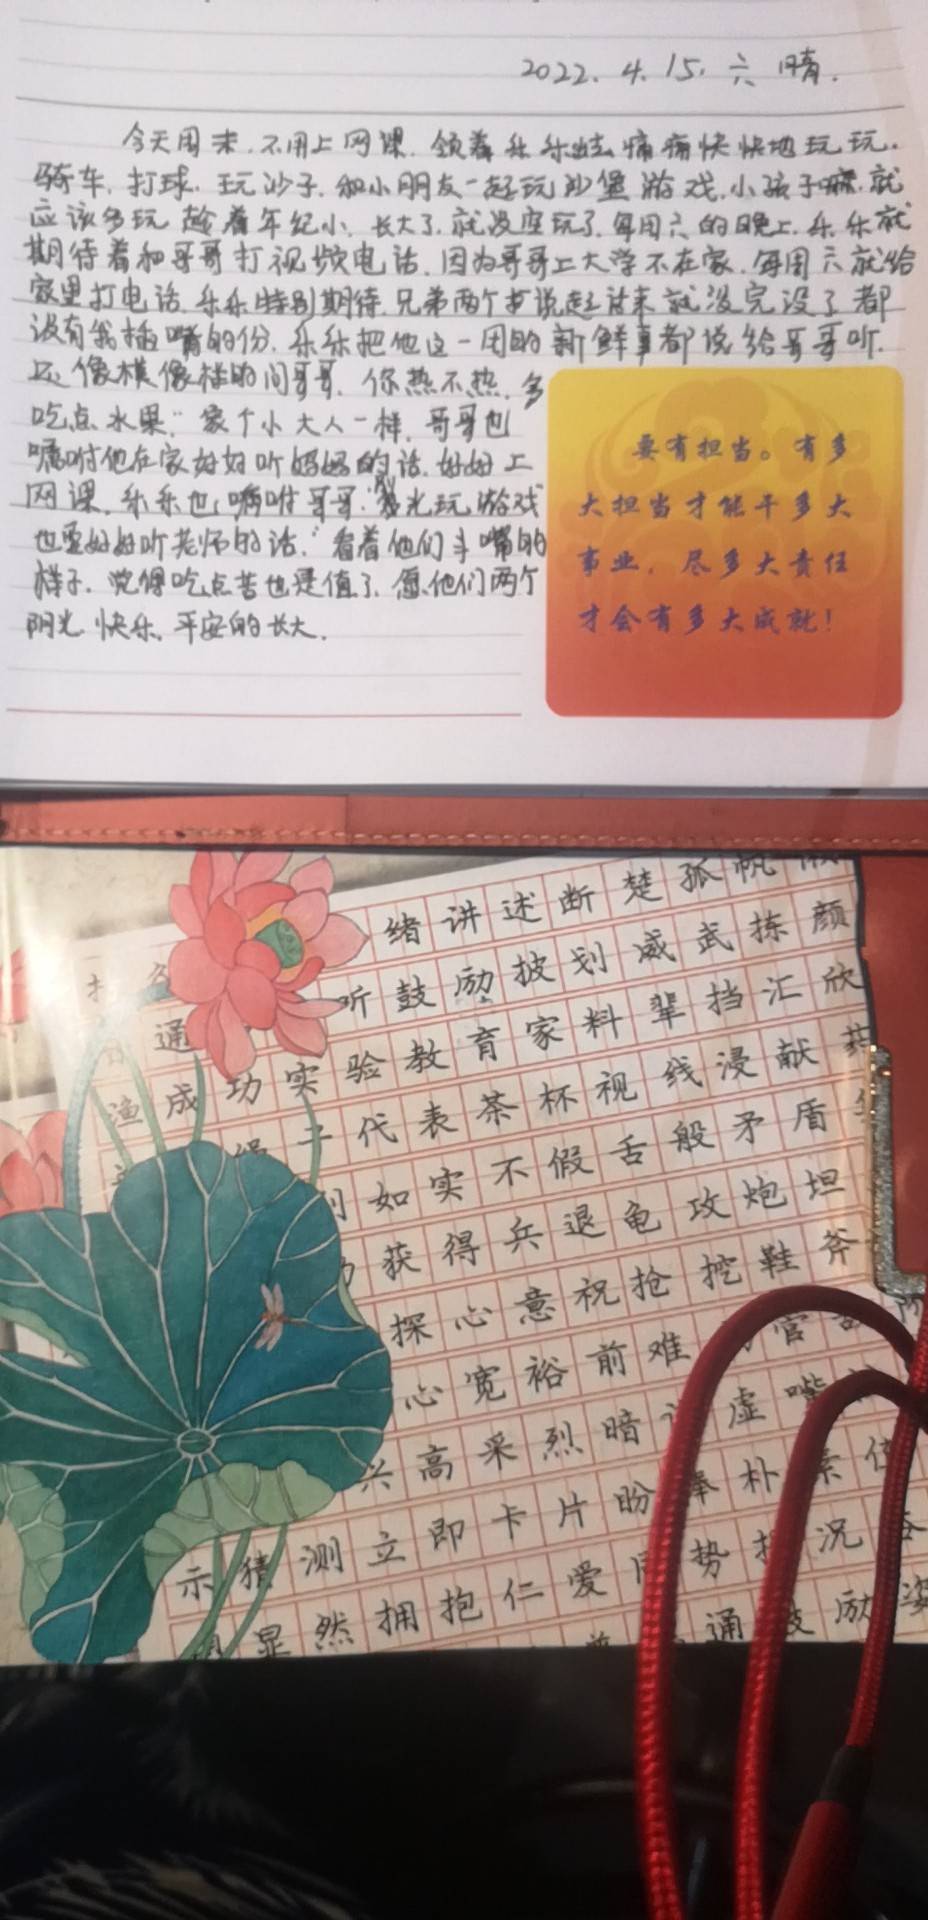 2022.4.15.六 晴.
今天周末.不用上网课.领着乐乐出去痛痛快快地玩玩.
骑车.打球.玩沙子.和小朋友一起玩沙堡游戏.小孩子嘛.就
应该多玩 趁着年纪小.长大了.就没空玩了.每周六的晚上.乐乐就
期待着和哥哥打视频电话.因为哥哥上大学不在家.每周六就给
家里打电话.乐乐特别期待.兄弟两个 说起话来就没完没了 都
没有我插嘴的份.乐乐把他这一周的新鲜事都说给哥哥听.
还像模像样的问哥哥.你热不热.多
吃点水果."家个小大人一样.哥哥也
嘱咐他在家好好听妈妈的话.好好上
网课.乐乐也嘱咐哥哥. 光玩游戏
也要好好听老师的话."看着他们斗嘴的
样子.觉得吃点苦也是值了.愿他们两个
阳光.快乐.平安的长大.
要有担当。有多
大担当才能干多大
事业，尽多大责任
才会有多大成就！
绪讲述断楚孤帆
听鼓励披划威武拣颜
通
成功实验教育家料辈挡汇欣
渔
代表茶杯视线浸献
如实不假舌般矛盾
获得兵退龟攻炮坦
探心意祝抢挖鞋斧
心宽裕前难 官
兴高采烈暗 虚嘴
示猜测立即卡片盼 朴素
显然拥抱仁爱 势 况
通 励姿